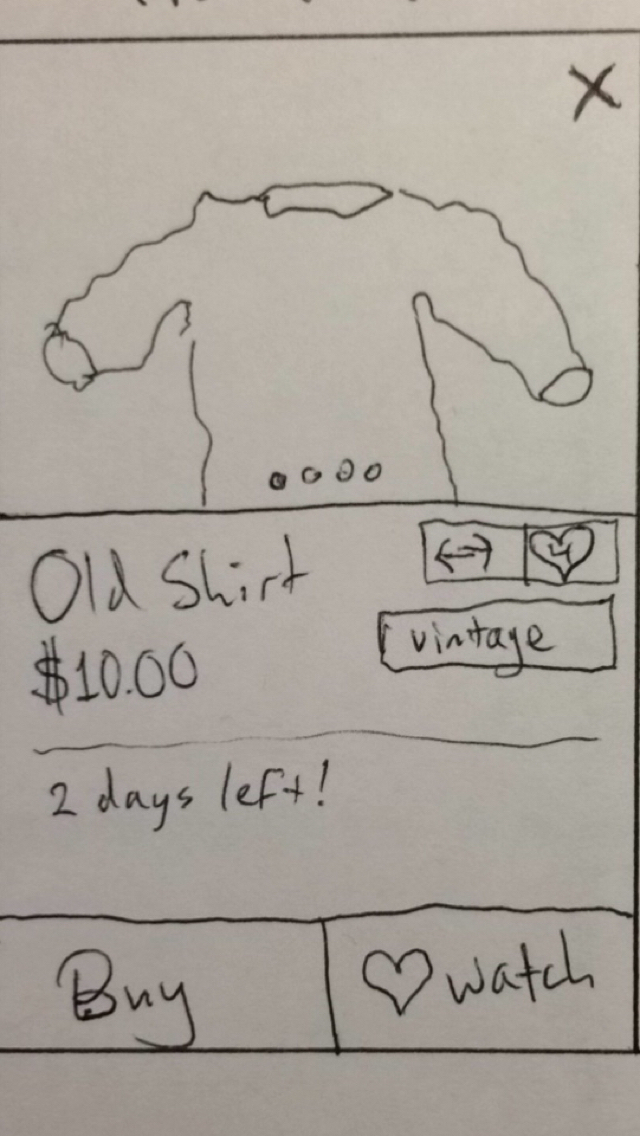 X
Old Shirt
4
$10.00
vintage
2 days left!
Buy
watch